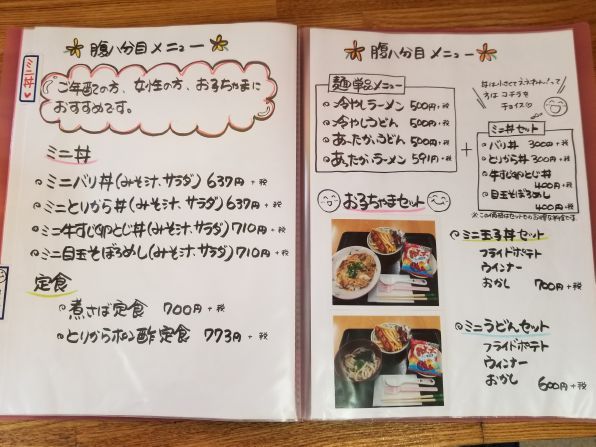 ミニ丼
腹八分目メニュー
ご年配の方、女性の方、お子ちゃまに
おすすめです。
ミニ丼
ミニバリ丼(みそ汁、サラダ) 637円+税
ミニとりから丼(みそ汁、サラダ) 637円+税
ミニ牛すじ卵とじ丼(みそ汁、サラダ) 710円+税
ミニ目玉そぼろめし(みそ汁、サラダ) 710円+税
定食
煮さば定食 700円+税
とりからポン酢定食 773円+税
腹八分目メニュー
麺単品メニュー
冷やしラーメン 500円+税
冷やしうどん 500円+税
あったかうどん 500円+税
あったかラーメン 591円+税
+
丼は小さくてええねん!って
方はコチラを
チョイス♡
ミニ丼セット
バリ丼 300円+税
とりから丼 300円+税
牛すじ卵とじ丼
400円+税
目玉そぼろめし
400円+税
※この価格はセットでのお得な料金です。
お子ちゃまセット
ミニ玉子丼セット
フライドポテト
ウインナー
おかし 700円+税
ミニうどんセット
フライドポテト
ウィンナー
おかし 600円+税